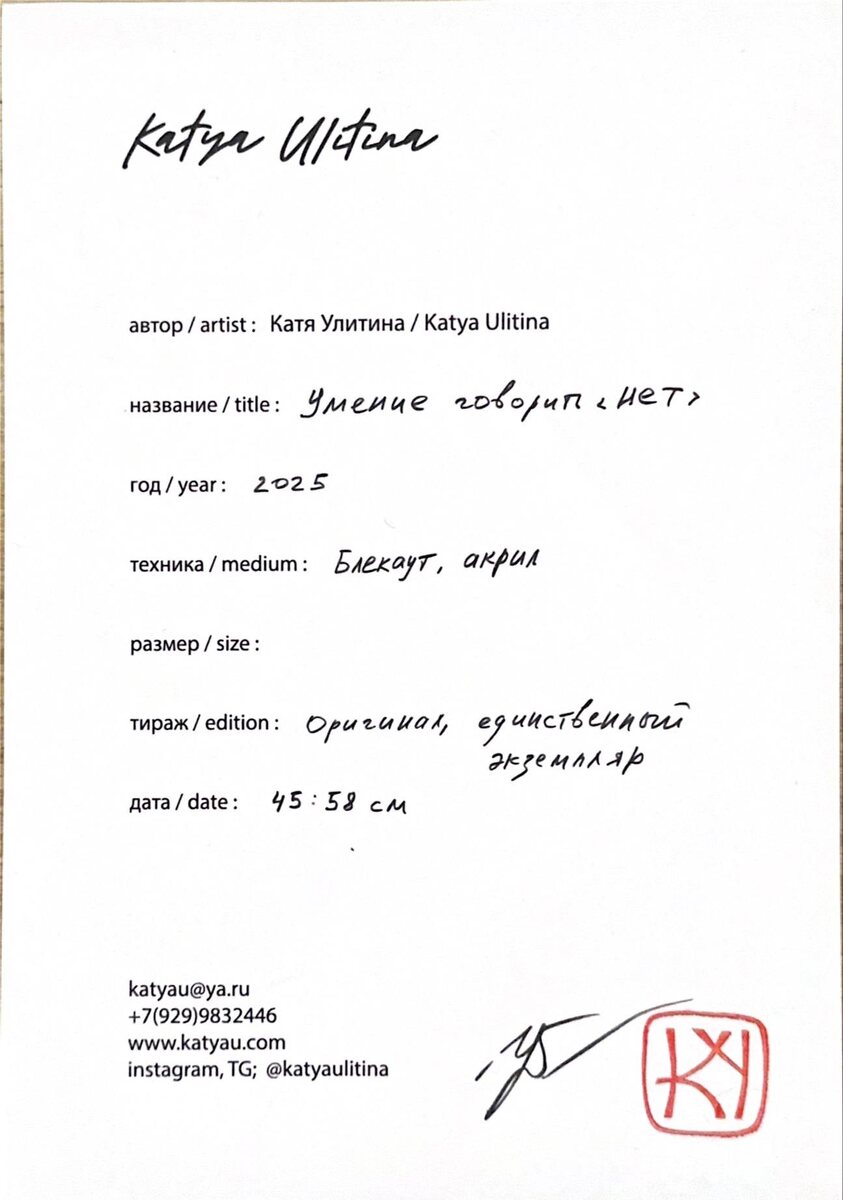 Katya Ulitina
автор / artist : Катя Улитина / Katya Ulitina
название / title : Умение говорить <Нет>
год / year : 2025
техника / medium : Блекаут, акрил
размер / size :
тираж / edition : Оригинал, единственный
экземпляр
дата / date : 45:58 см
katyau@ya.ru
+7(929)9832446
www.katyau.com
instagram, TG; @katyaulitina